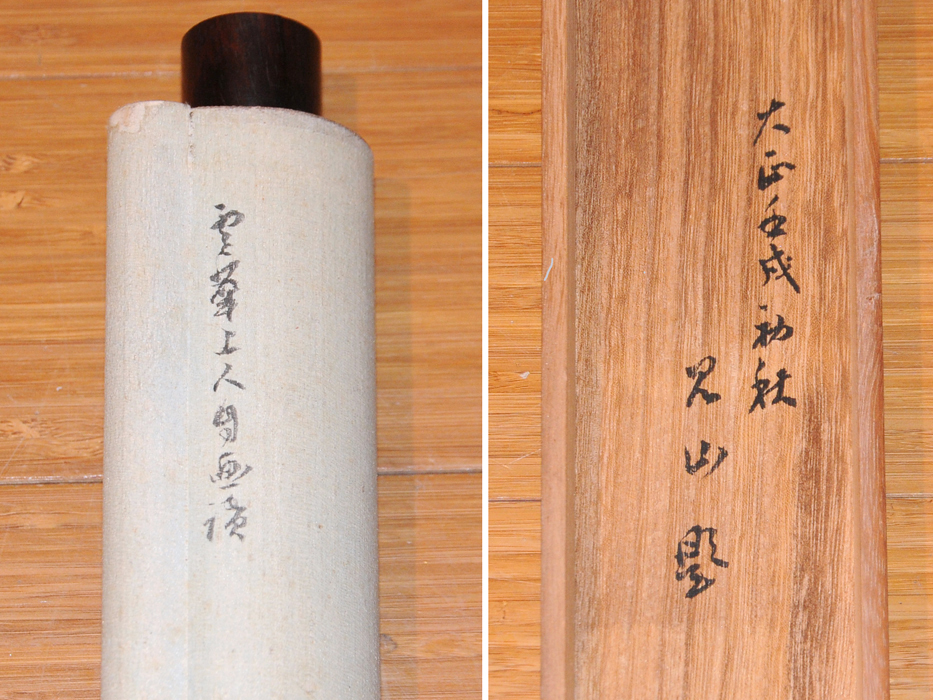 雲華上人自画讃
大正壬戌初秋
山題